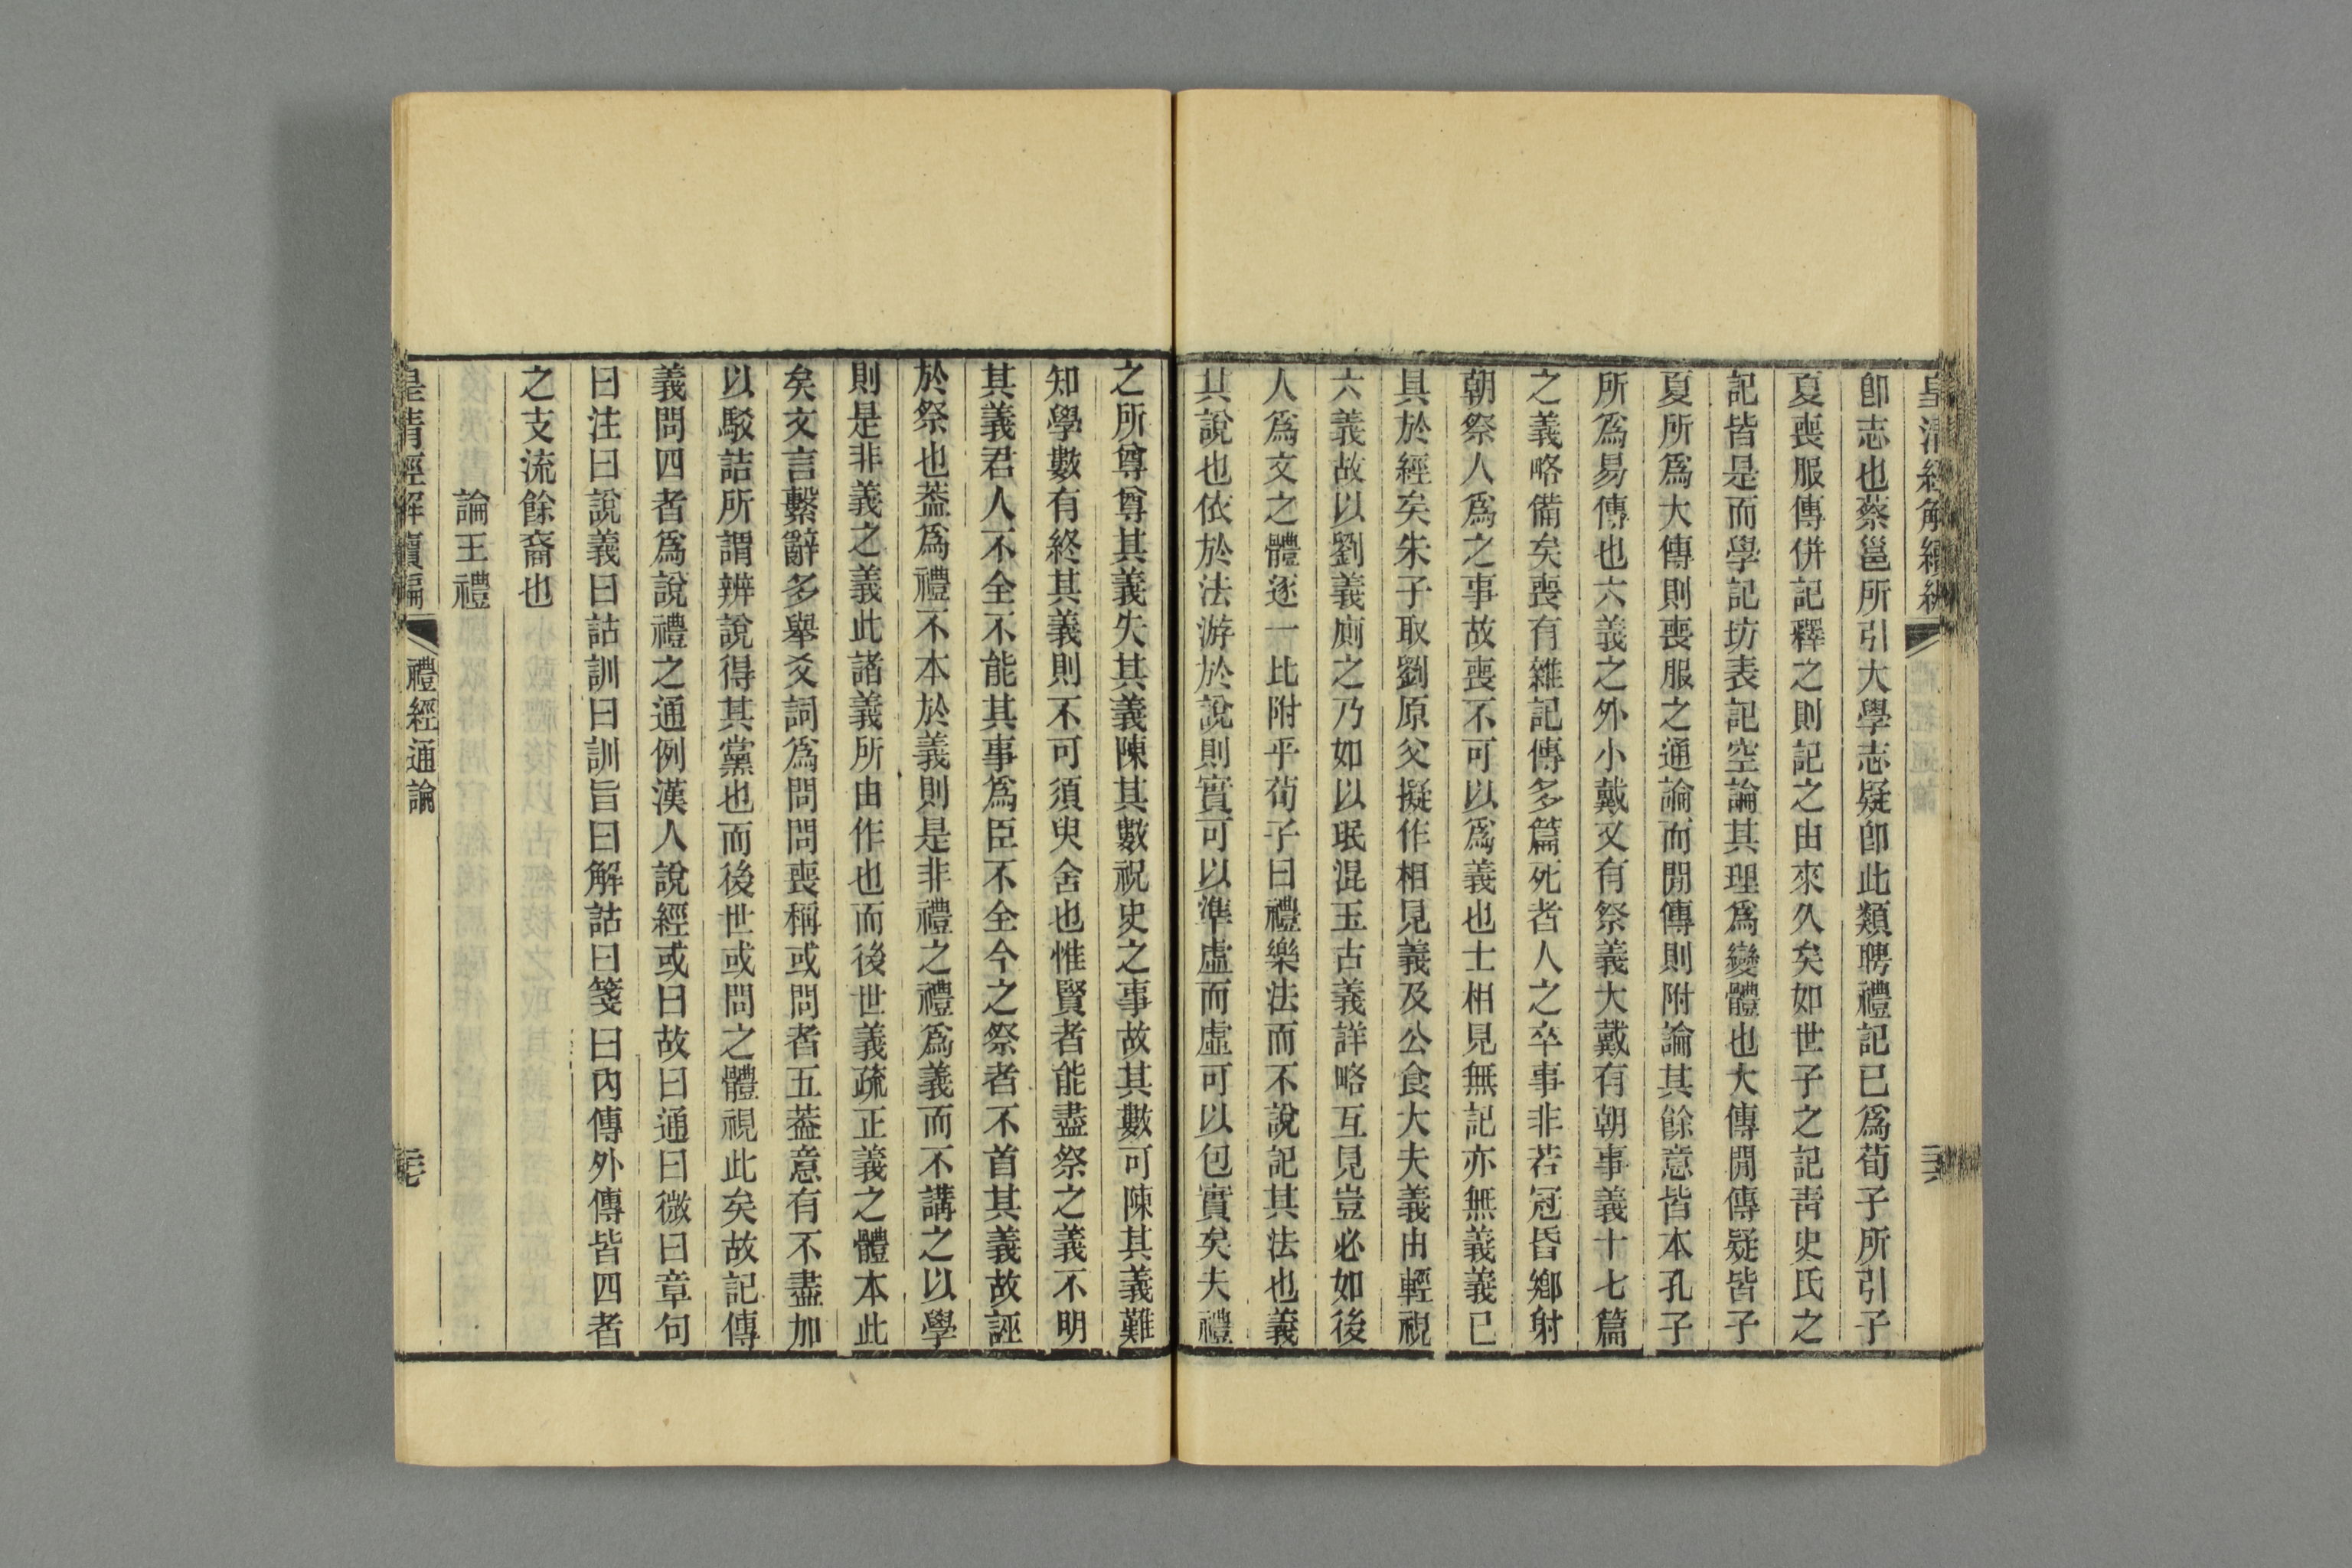 皇清經解續編
卽志也蔡邕所引大學志疑卽此類聘禮記已爲荀子所引子
夏喪服傳併記釋之則記之由來久矣如世子之記靑史氏之
記皆是而學記坊表記空論其理爲變體也大傳閒傳疑皆子
夏所爲大傳則喪服之通論而閒傳則附論其餘意皆本孔子
所爲易傳也六義之外小戴又有祭義大戴有朝事義十七篇
之義略備矣喪有雜記傳多篇死者人之卒事非若冠昏鄉射
朝祭人爲之事故喪不可以爲義也士相見無記亦無義義已
具於經矣朱子取劉原父擬作相見義及公食大夫義由輕視
六義故以劉義廁之乃如以珉混玉古義詳略互見豈必如後
人爲文之體逐一比附乎荀子曰禮樂法而不說記其法也義
其說也依於法游於說則實可以準虛而虛可以包實矣夫禮
之所尊尊其義失其義陳其數祝史之事故其數可陳其義難
知學數有終其義則不可須臾舍也惟賢者能盡祭之義不明
其義君人不全不能其事爲臣不全今之祭者不首其義故誣
於祭也葢爲禮不本於義則是非禮之禮爲義而不講之以學
則是非義之義此諸義所由作也而後世義疏正義之體本此
矣文言繫辭多舉爻詞爲問問喪稱或問者五葢意有不盡加
以駁詰所謂辨說得其黨也而後世或問之體視此矣故記傳
義問四者爲說禮之通例漢人說經或曰故曰通曰微曰章句
曰注曰說義曰詁訓曰訓旨曰解詁曰箋曰內傳外傳皆四者
之支流餘裔也
論王禮
皇清經解續編
禮經通論